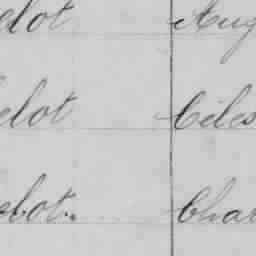 elot Aug
elot Celes
elot. Char